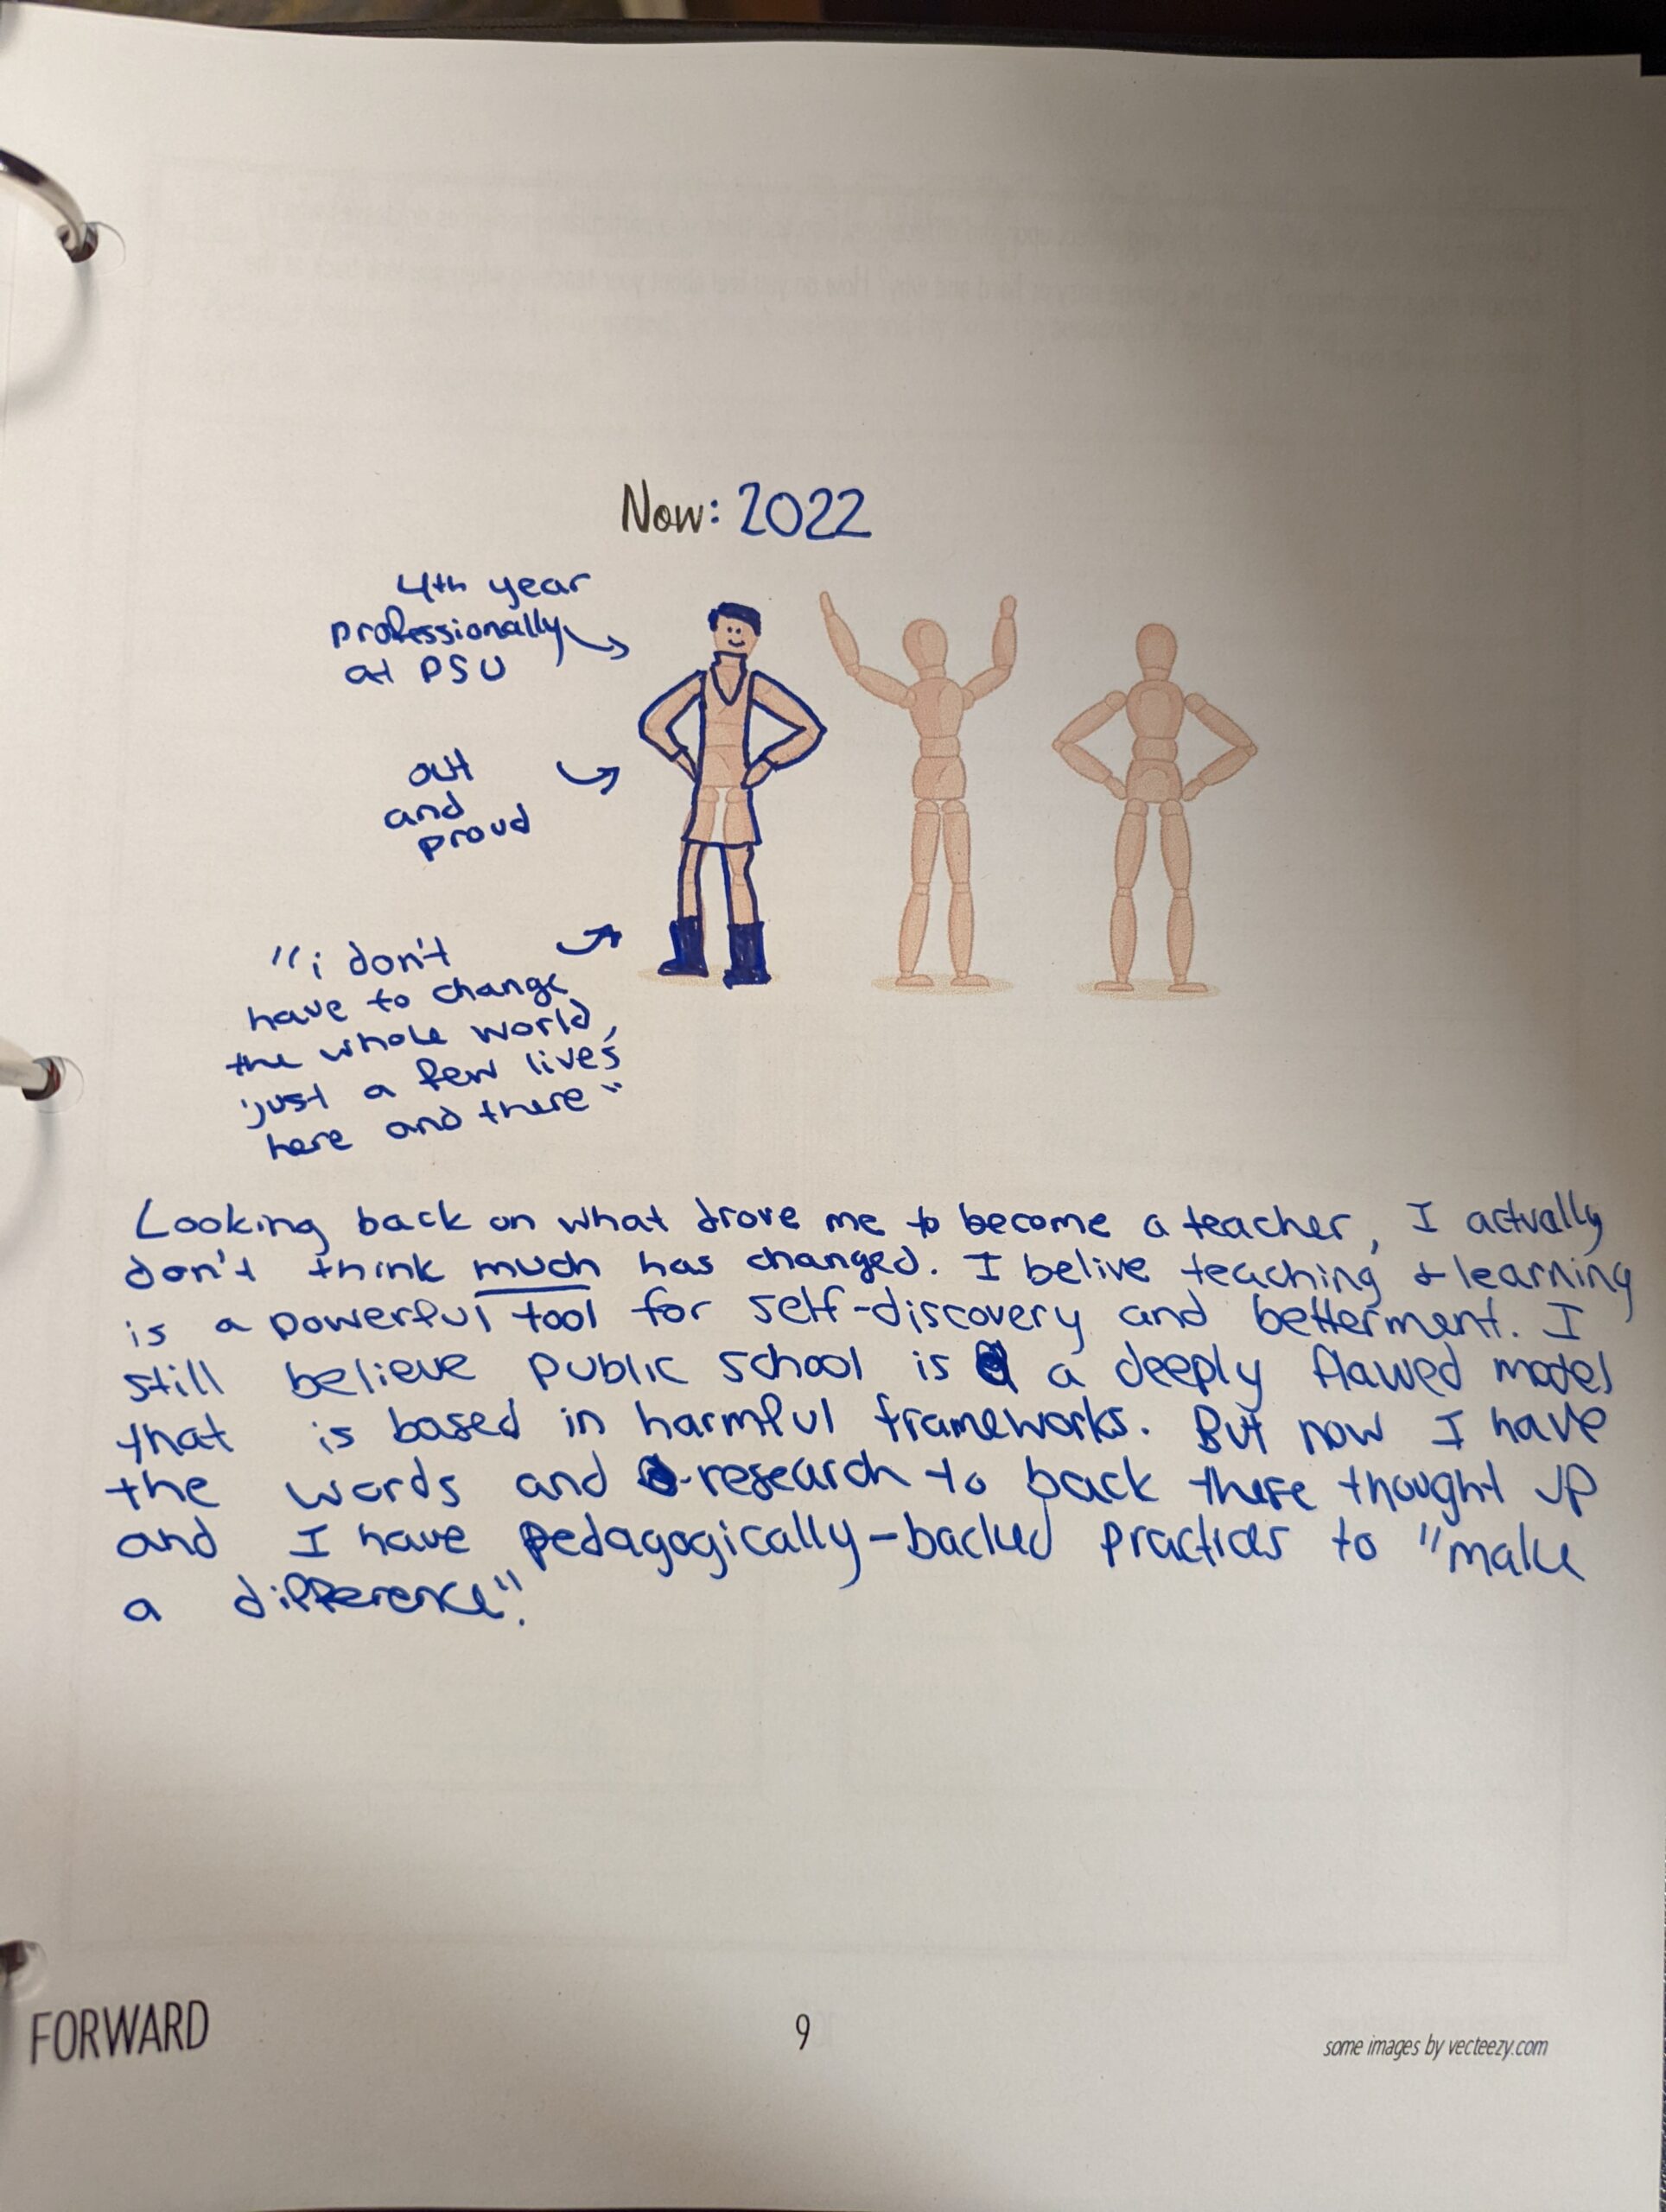 Now: 2022
4th year
professionally
at PSU
out
and
proud
"i don't
have to change
the whole world,
just a few lives
here and there"
Looking back on what drove me to become a teacher, I actually
don't think much has changed. I belive teaching & learning
is a powerful tool for self-discovery and betterment. I
still believe public school is a deeply flawed model
that is based in harmful frameworks. But now I have
the words and research to back these thought up
and I have pedagogically-backed practices to "make
a difference".
FORWARD
9
some images by vecteezy.com